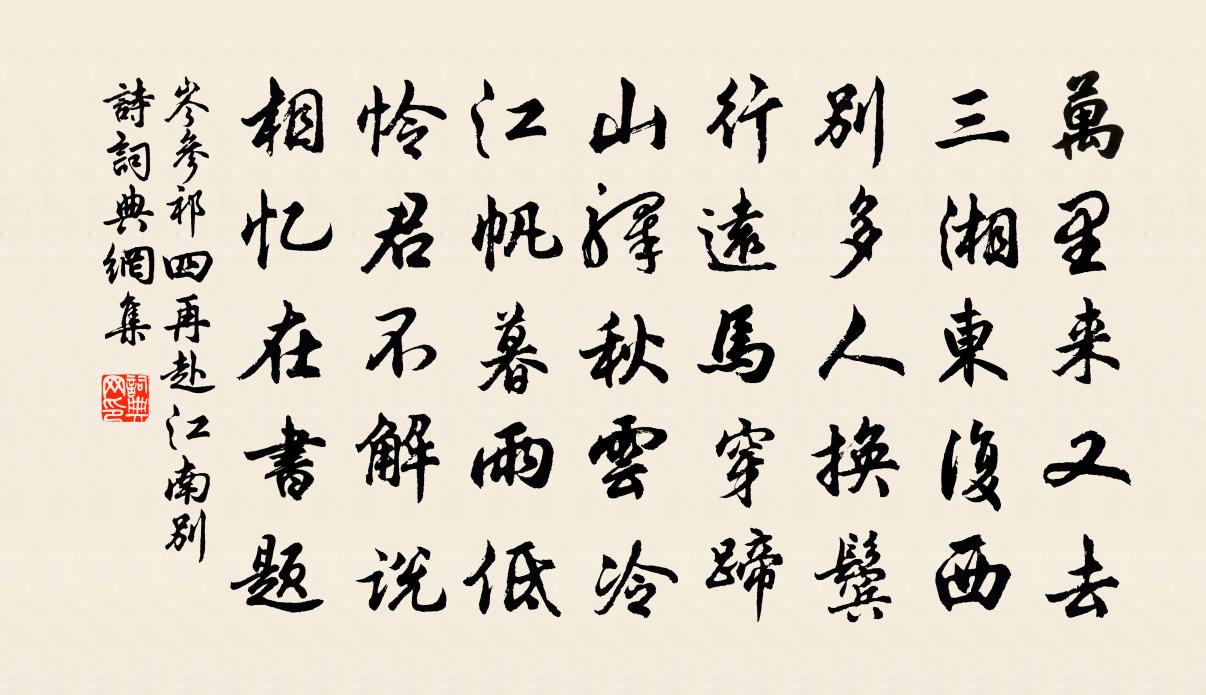 萬里来又去
三湘東復西
別多人換鬢
行遠馬穿蹄
山驛秋雲冷
江帆暮雨低
怜君不解说
相忆在書题
岑參祁四再赴江南別
詩詞典網集
詞典网印